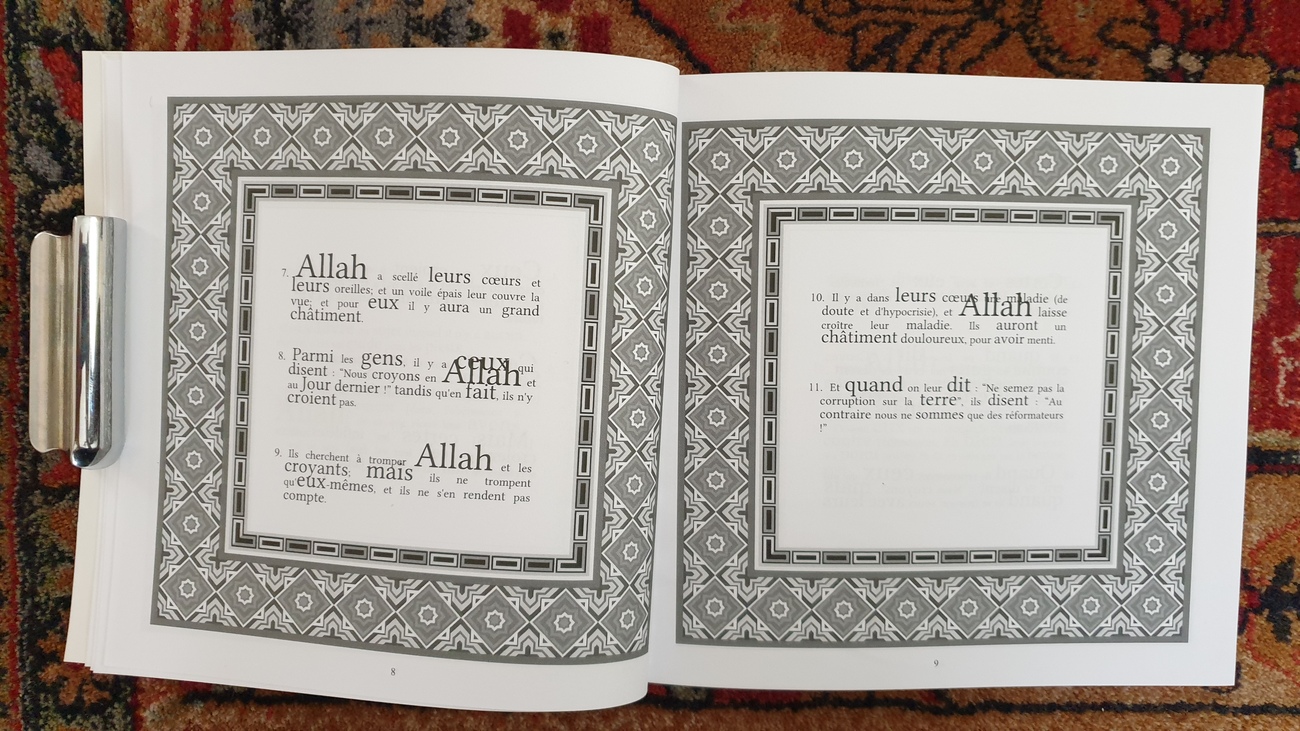 7. Allah a scellé leurs cœurs et
leurs oreilles; et un voile épais leur couvre la
vue; et pour eux il y aura un grand
châtiment.
8. Parmi les gens, il y a ceux qui
disent : “Nous croyons en Allah et
au Jour dernier !” tandis qu'en fait, ils n'y
croient pas.
9. Ils cherchent à tromper Allah et les
croyants; mais ils ne trompent
qu'eux-mêmes, et ils ne s'en rendent pas
compte.
8
10. Il y a dans leurs cœurs une maladie (de
doute et d'hypocrisie), et Allah laisse
croître leur maladie. Ils auront un
châtiment douloureux, pour avoir menti.
11. Et quand on leur dit : “Ne semez pas la
corruption sur la terre”, ils disent : “Au
contraire nous ne sommes que des réformateurs
!”
9